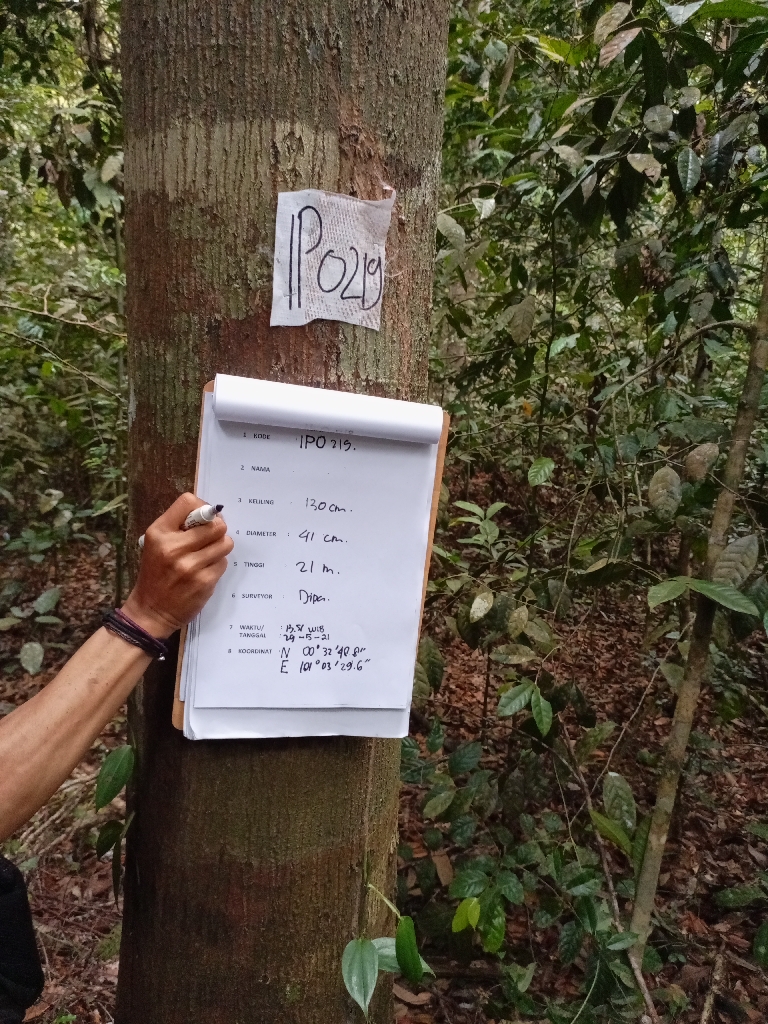 IPO219
1 KODE : IPO 219.
2 NAMA :
3 KELILING : 130 cm.
4 DIAMETER : 41 cm.
5 TINGGI : 21 m.
6 SURVEYOR : Dipa.
7 WAKTU/ : 13.51 WIB
TANGGAL : 29-5-21
8 KOORDINAT : N 00° 32' 48.8"
E 101° 03' 29.6"